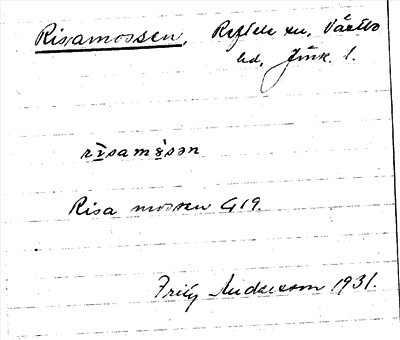 Risamossen, Reftele sn, Västbo
hd, Jönk. l.
risamȯsən
Risa mossen G19.
Fritz Andersson 1931.